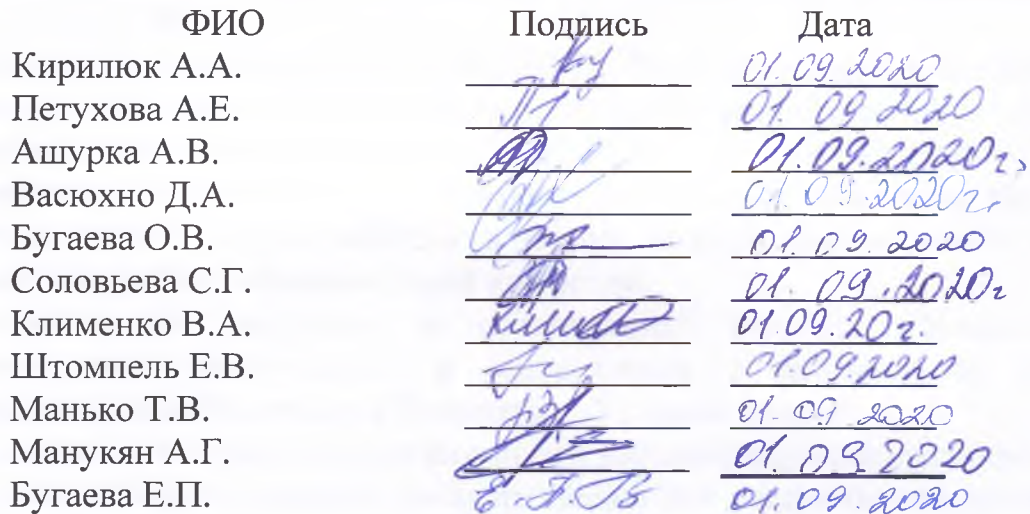 ФИО Подпись Дата
Кирилюк А.А. 01.09.2020
Петухова А.Е. 01.09 2020
Ашурка А.В. 01.09.2020г.
Васюхно Д.А. 01.09.2020г.
Бугаева О.В. 01.09.2020
Соловьева С.Г. 01.09.2020г
Клименко В.А. 01.09.20г.
Штомпель Е.В. 01.09.2020
Манько Т.В. 01.09 2020
Манукян А.Г. 01.09 2020
Бугаева Е.П. 01.09.2020